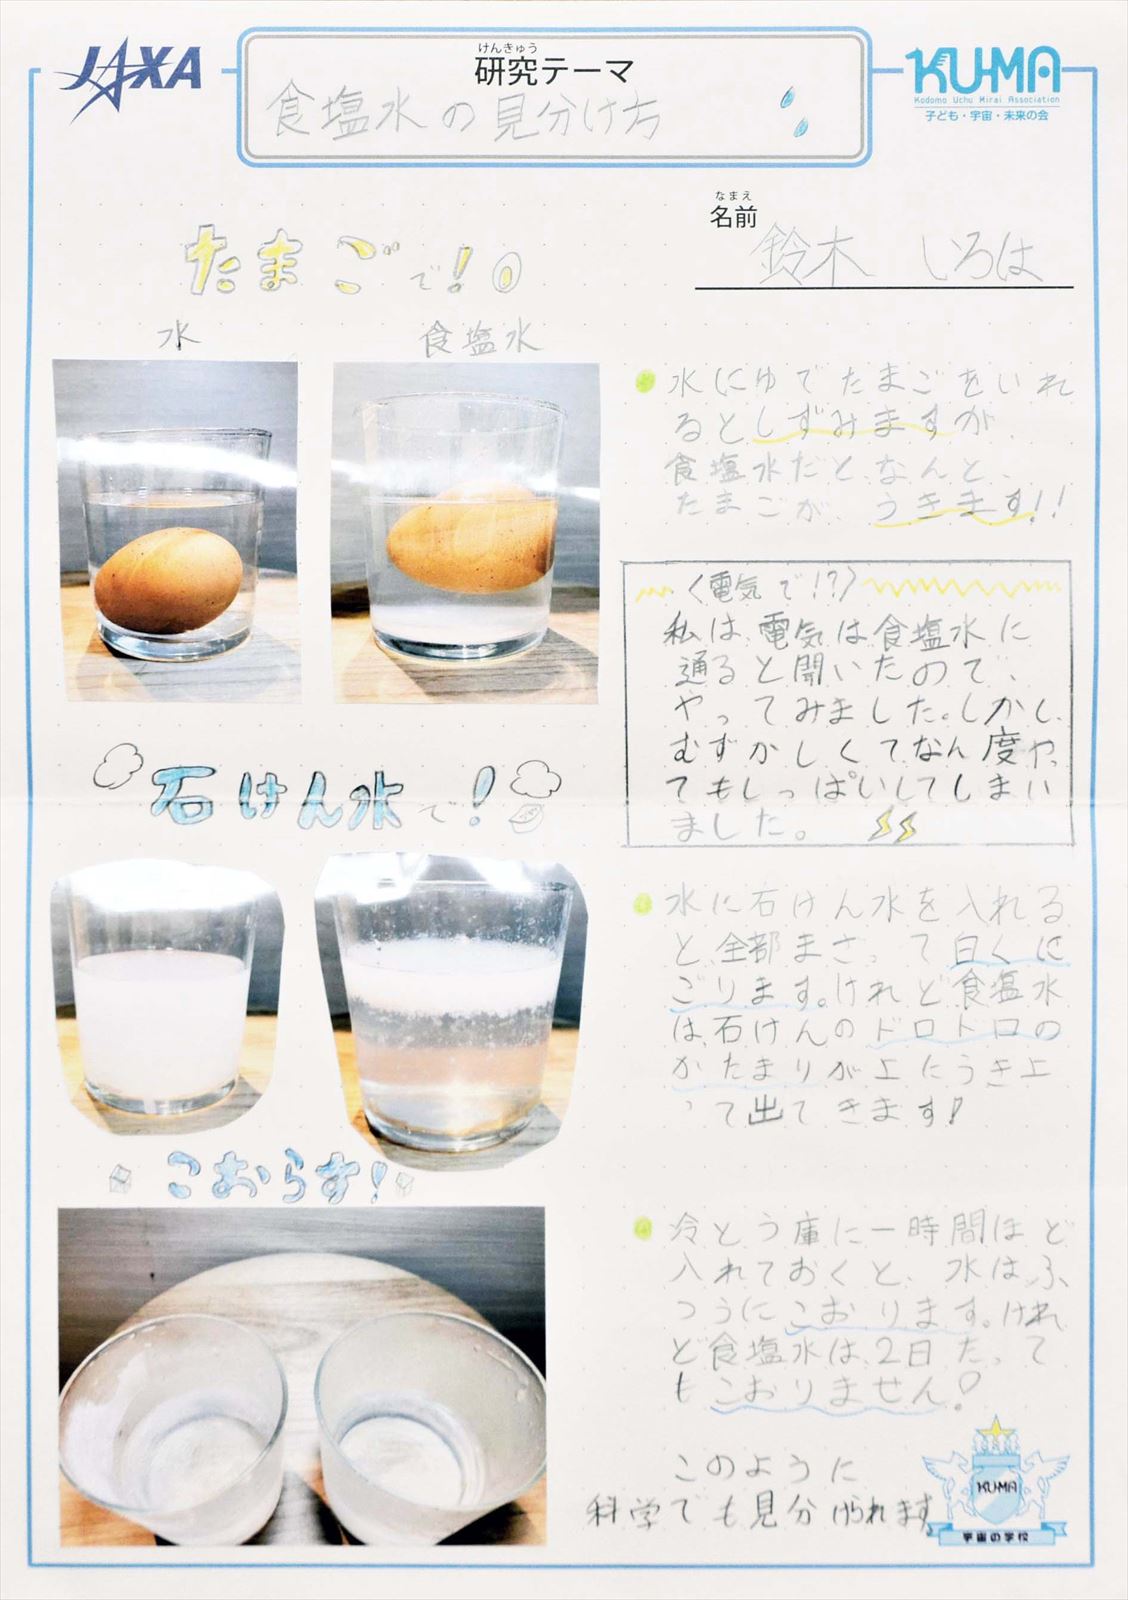 JAXA
けんきゅう
研究テーマ
食塩水の見分け方
KU-MA
Kodomo Uchu Mirai Association
子ども・宇宙・未来の会
なまえ
名前
鈴木 いろは
たまごで!
水
食塩水
水にゆでたまごをいれ
るとしずみますが、
食塩水だと、なんと、
たまごが、うきます!!
〈電気で!?〉
私は、電気は食塩水に
通ると聞いたので、
やってみました。しかし、
むずかしくてなん度や
てもしっぱいしてしまい
ました。
石けん水で!
水に石けん水を入れる
と、全部まざって白くに
ごります。けれど食塩水
は、石けんのドロドロの
かたまりが上にうき上
って出てきます!
こおらす!
冷とう庫に一時間ほど
入れておくと、水は、ふ
つうにこおります。けれ
ど食塩水は、2日たって
もこおりません!
このように
科学でも見分けられます
KU-MA
宇宙の学校